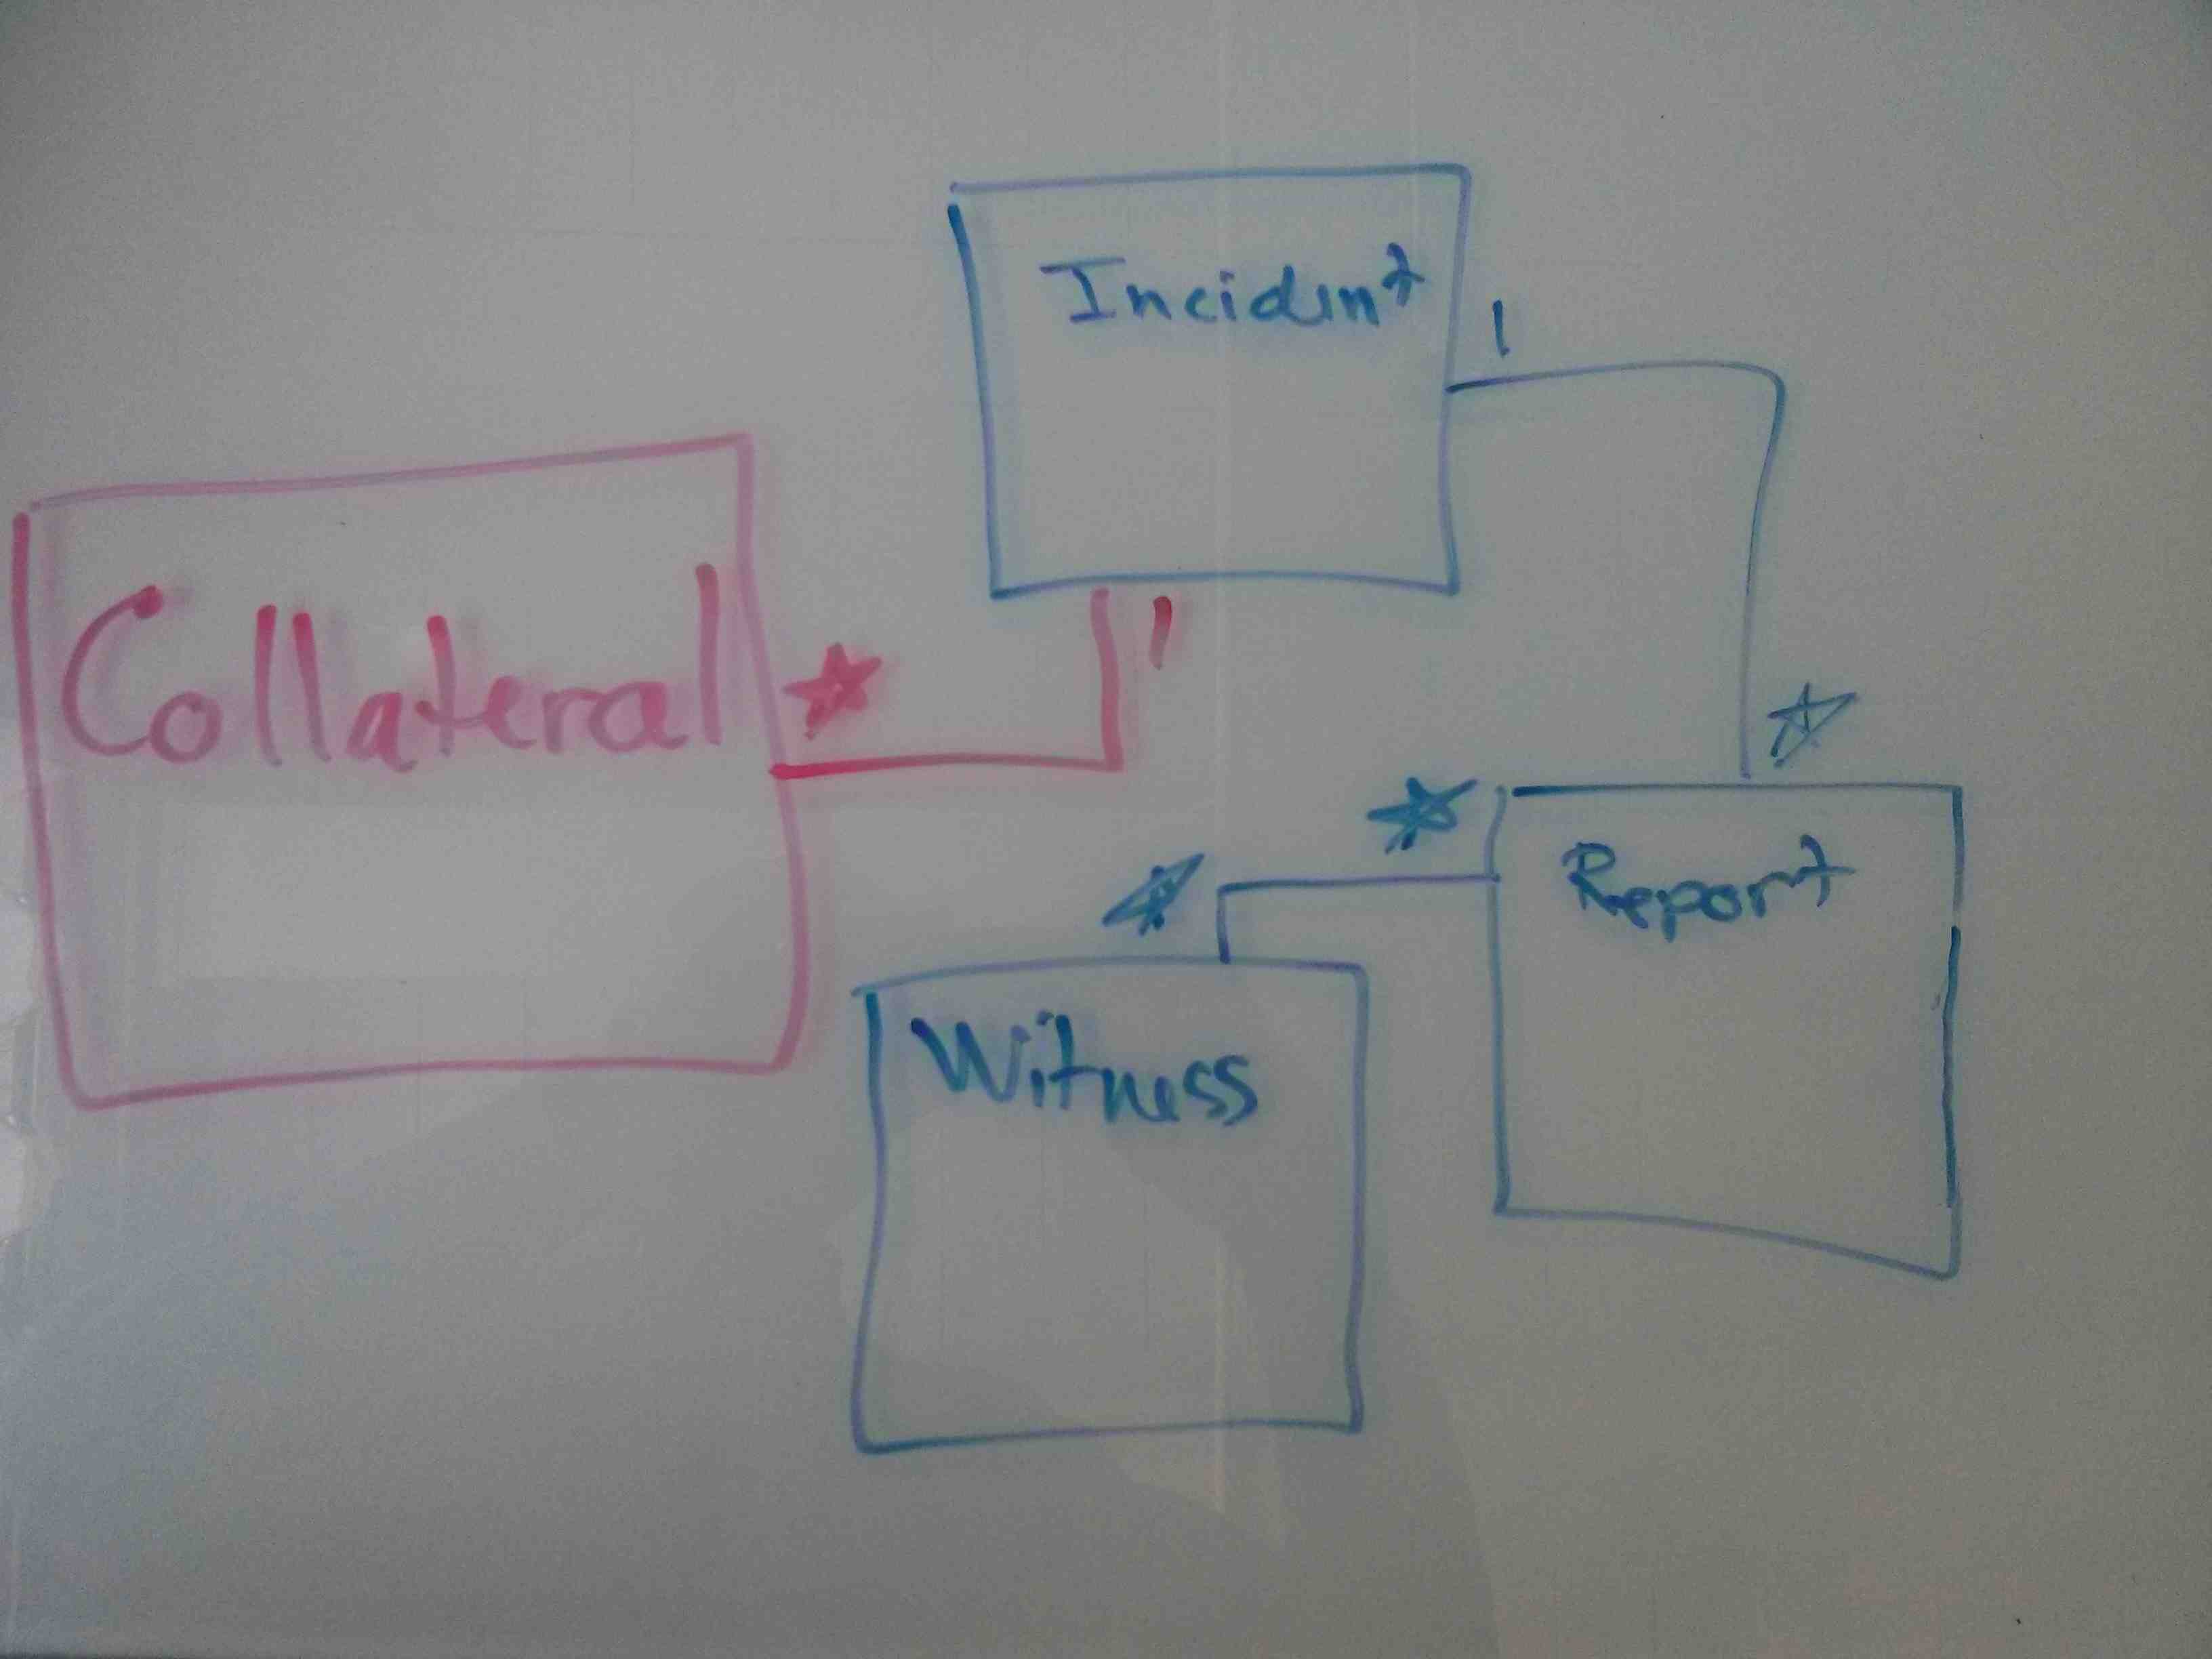 Incident
1
Collateral
*
1
*
*
*
Report
Witness